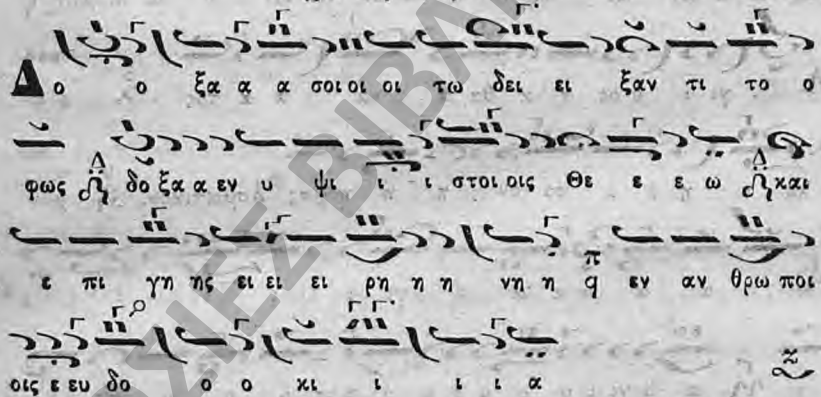 Δο ο ξα α α σοι οι οι τω δει ει ξαν τι το ο
φως Δ δο ξα α εν υ ψι ι ι στοι οις Θε ε ε ω Δ και
ε πι γη ης ει ει ει ρη η η νη η π q εν αν θρω ποι
οις ε ευ δο ο ο κι ι ι ι α